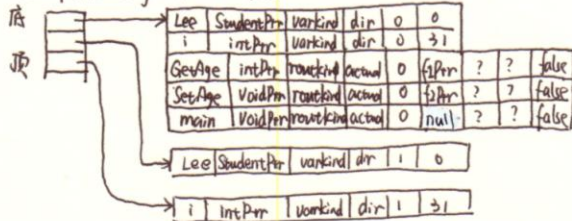 底
顶
Lee StudentPtr varkind dir 0 0
i intPtr varkind dir 0 31
GetAge intPtr routkind actual 0 f1Ptr ? ? false
SetAge VoidPtr routkind actual 0 f2Ptr ? ? false
main VoidPtr routkind actual 0 null ? ? false
Lee StudentPtr varkind dir 1 0
i IntPtr varkind dir 1 31